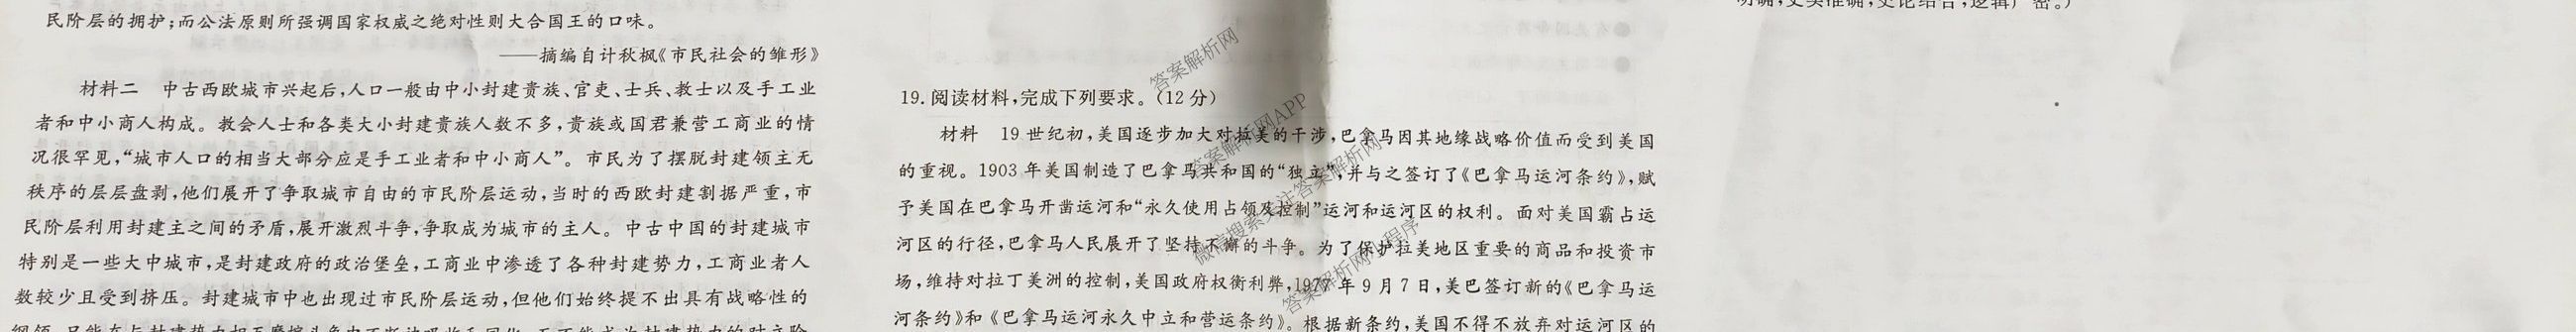 民阶层的拥护;而公法原则所强调国家权威之绝对性则大合国王的口味。
——摘编自计秋枫《市民社会的雏形》
材料二　中古西欧城市兴起后,人口一般由中小封建贵族、官吏、士兵、教士以及手工业
者和中小商人构成。教会人士和各类大小封建贵族人数不多,贵族或国君兼营工商业的情
况很罕见,“城市人口的相当大部分应是手工业者和中小商人”。市民为了摆脱封建领主无
秩序的层层盘剥,他们展开了争取城市自由的市民阶层运动,当时的西欧封建割据严重,市
民阶层利用封建主之间的矛盾,展开激烈斗争,争取成为城市的主人。中古中国的封建城市
特别是一些大中城市,是封建政府的政治堡垒,工商业中渗透了各种封建势力,工商业者人
数较少且受到挤压。封建城市中也出现过市民阶层运动,但他们始终提不出具有战略性的
19.阅读材料,完成下列要求。(12分)
材料　19世纪初,美国逐步加大对拉美的干涉,巴拿马因其地缘战略价值而受到美国
的重视。1903年美国制造了巴拿马共和国的“独立”,并与之签订了《巴拿马运河条约》,赋
予美国在巴拿马开凿运河和“永久使用占领及控制”运河和运河区的权利。面对美国霸占运
河区的行径,巴拿马人民展开了坚持不懈的斗争。为了保护拉美地区重要的商品和投资市
场,维持对拉丁美洲的控制,美国政府权衡利弊,1977年9月7日,美巴签订新的《巴拿马运
河条约》和《巴拿马运河永久中立和营运条约》。根据新条约,美国不得不放弃对运河区的
答案解析网
答案解析网APP
微信搜索关注答案解析网
答案解析网小程序